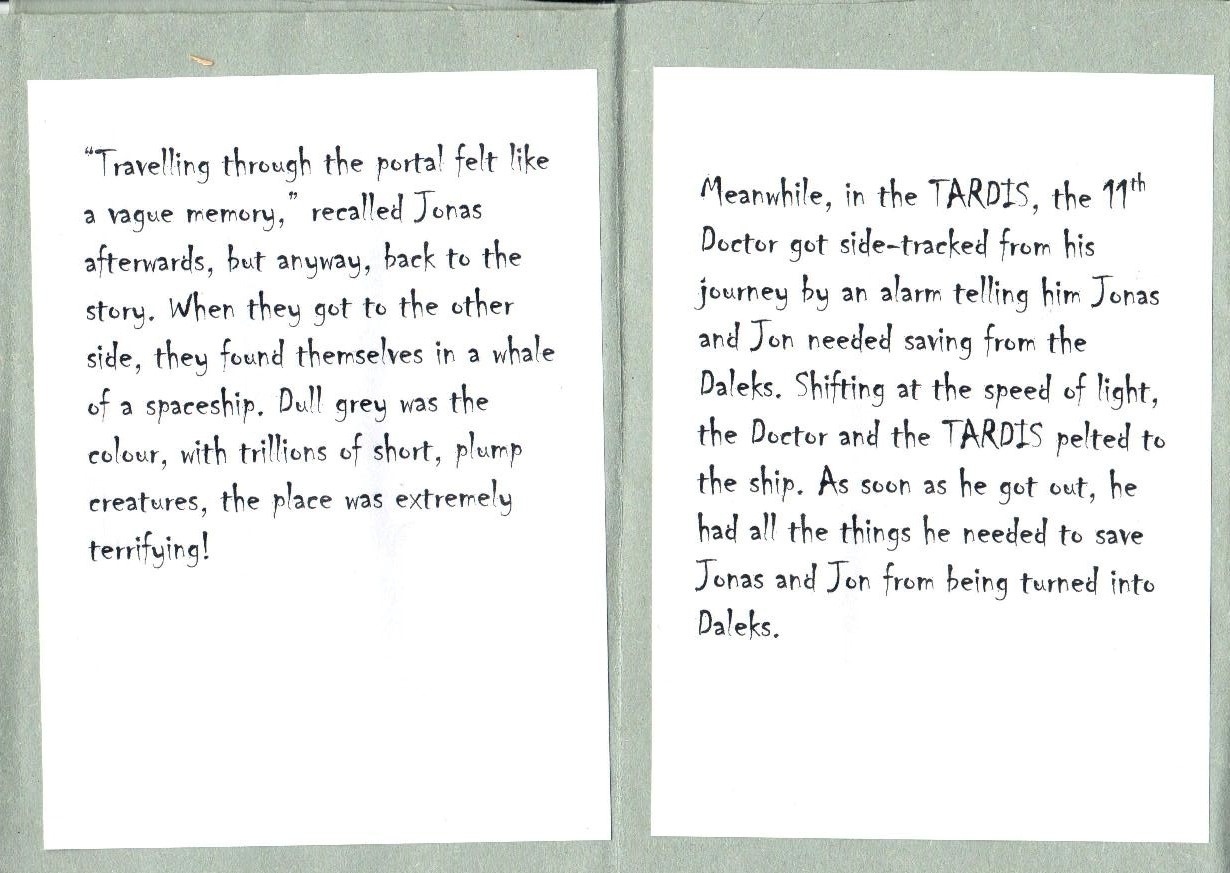 “Travelling through the portal felt like
a vague memory,” recalled Jonas
afterwards, but anyway, back to the
story. When they got to the other
side, they found themselves in a whale
of a spaceship. Dull grey was the
colour, with trillions of short, plump
creatures, the place was extremely
terrifying!
Meanwhile, in the TARDIS, the 11th
Doctor got side-tracked from his
journey by an alarm telling him Jonas
and Jon needed saving from the
Daleks. Shifting at the speed of light,
the Doctor and the TARDIS pelted to
the ship. As soon as he got out, he
had all the things he needed to save
Jonas and Jon from being turned into
Daleks.